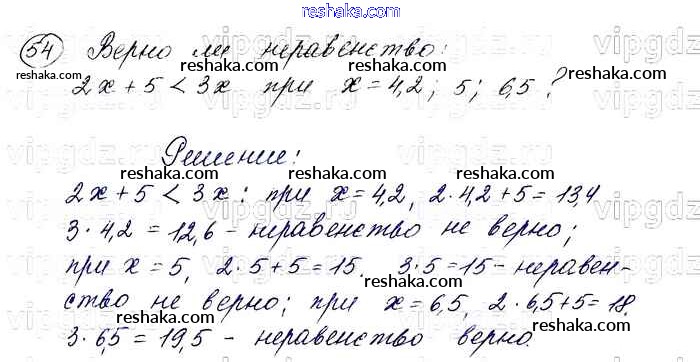 reshaka.com
54 Верно ли неравенство:
reshaka.com reshaka.com reshaka.com
2x + 5 < 3x при x = 4,2; 5; 6,5 ?
Решение:
reshaka.com reshaka.com
2x + 5 < 3x: при x = 4,2, 2·4,2 + 5 = 13,4
reshaka.com
3·4,2 = 12,6 - неравенство не верно;
reshaka.com
при x = 5, 2·5 + 5 = 15. 3·5 = 15 - неравен-
reshaka.com
ство не верно; при x = 6,5, 2·6,5 + 5 = 18.
reshaka.com reshaka.com
3·6,5 = 19,5 - неравенство верно.
reshaka.com
vipgdz.ru